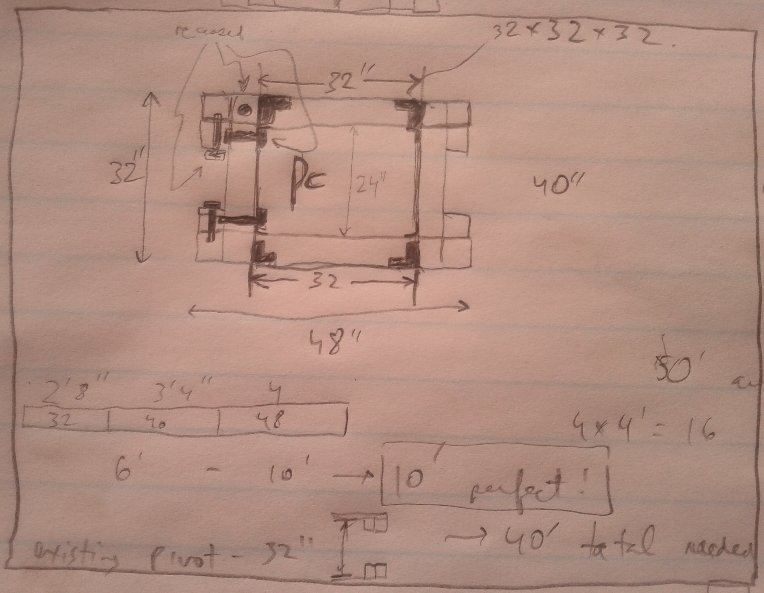 recessed
32 x 32 x 32.
32"
32"
PC
24"
40"
32
48"
50'
2'8" 3'4" 4
32 40 48
4 x 4' = 16
6' - 10' → 10' perfect!
→ 40' total needed
existing pivot - 32"